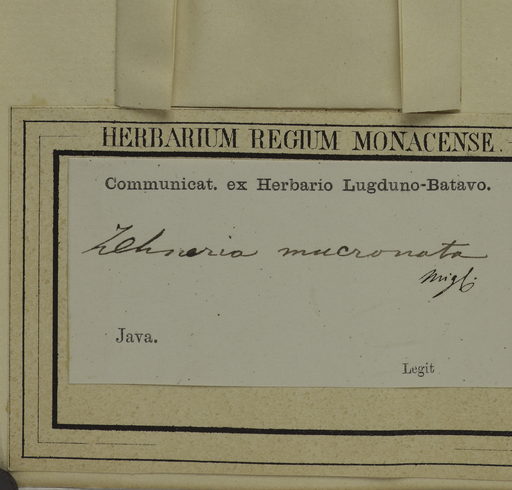 HERBARIUM REGIUM MONACENSE.
Communicat. ex Herbario Lugduno-Batavo.
Zehneria mucronata
Miq.
Java.
Legit